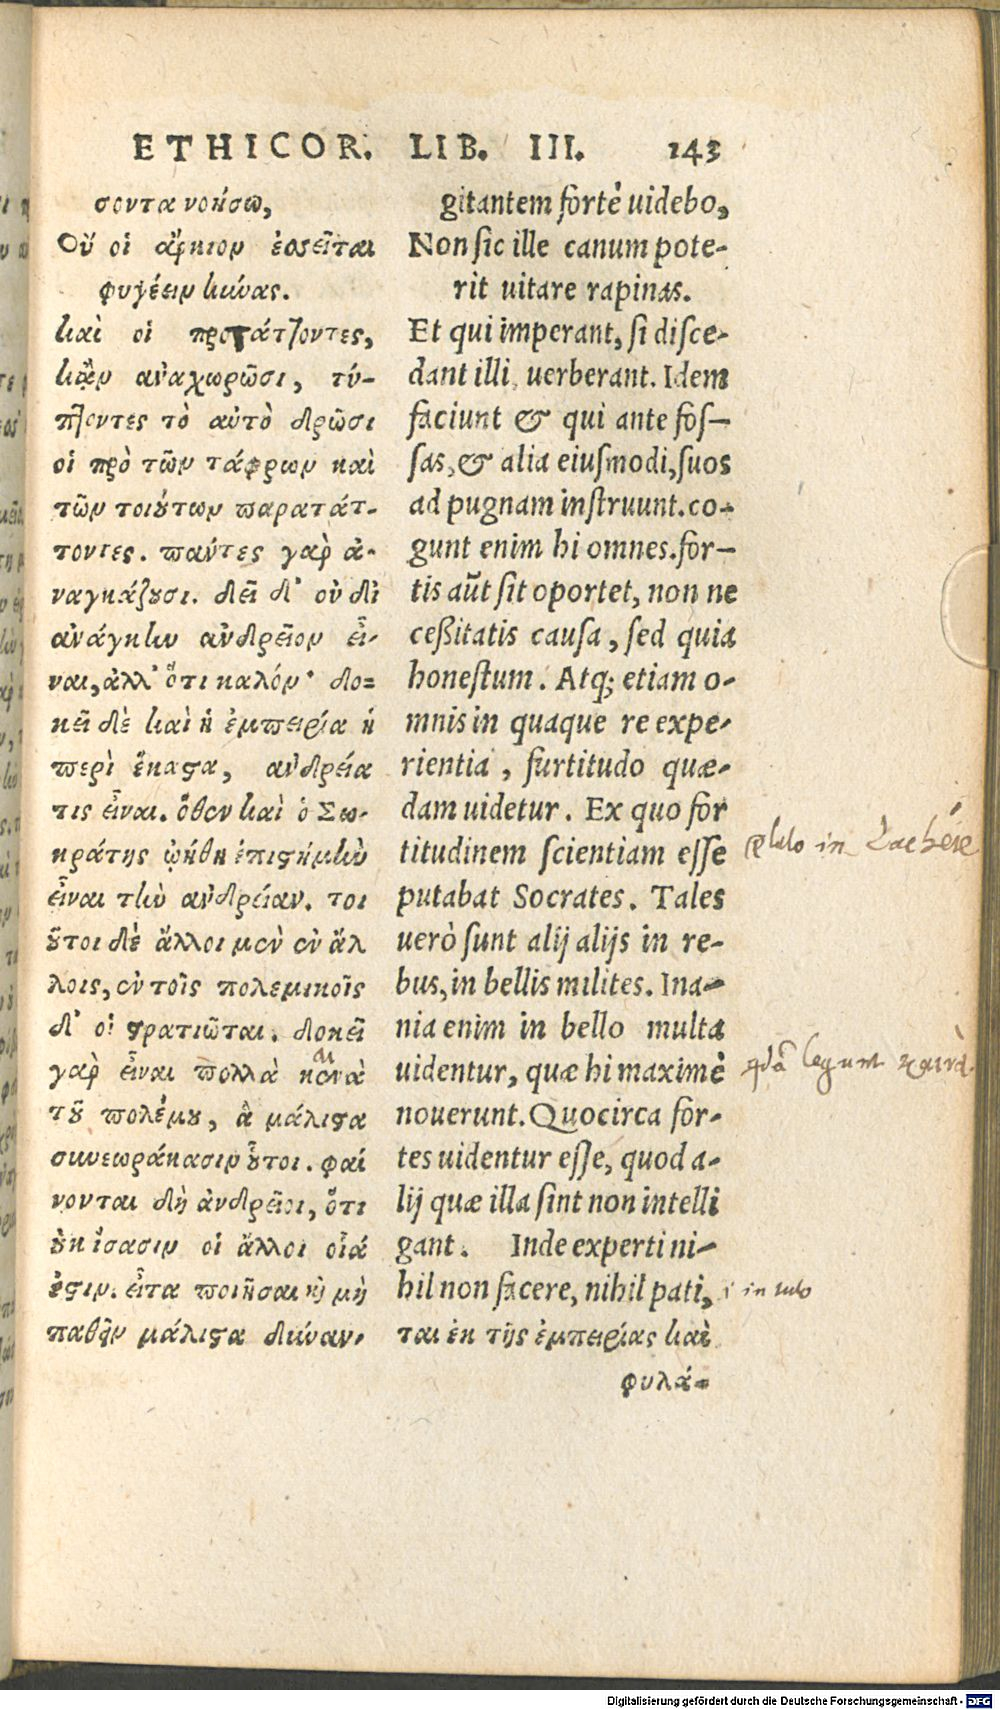 ETHICOR. LIB. III. 143
σοντα νοήσω,
Οὔ οἱ ἄρκιον ἐσσεῖται
φυγέειν κύνας.
καὶ οἱ προστάττοντες,
κἂν ἀναχωρῶσι, τύ-
πτοντες τὸ αὐτὸ δρῶσι
οἱ πρὸ τῶν τάφρων καὶ
τῶν τοιούτων παρατάτ-
τοντες. πάντες γὰρ ἀ-
ναγκάζουσι. δεῖ δ' οὐ δι
ἀνάγκην ἀνδρεῖον εἶ-
ναι, ἀλλ' ὅτι καλόν· δο=
κεῖ δὲ καὶ ἡ ἐμπειρία ἡ
περὶ ἕκαστα, ἀνδρεία
τις εἶναι. ὅθεν καὶ ὁ Σω-
κράτης ᾠήθη ἐπιστήμην
εἶναι τὴν ἀνδρείαν. τοι
οῦτοι δὲ ἄλλοι μὲν ἐν ἄλ
λοις, ἐν τοῖς πολεμικοῖς
δ' οἱ στρατιῶται. δοκεῖ
γὰρ εἶναι πολλὰ κενὰ
τοῦ πολέμου, ἃ μάλιστα
συνεωράκασιν οὗτοι. φαί
νονται δὴ ἀνδρεῖοι, ὅτι
οὐκ ἴσασιν οἱ ἄλλοι οἷά
ἐστιν. εἶτα ποιῆσαι καὶ μὴ
παθεῖν μάλιστα δύναν-
gitantem fortè uidebo,
Non sic ille canum pote-
rit uitare rapinas.
Et qui imperant, si disce-
dant illi, uerberant. Idem
faciunt & qui ante fos-
sas, & alia eiusmodi, suos
ad pugnam instruunt. co-
gunt enim hi omnes. for-
tis aūt sit oportet, non ne
cessitatis causa, sed quia
honestum. Atq; etiam o-
mnis in quaque re expe-
rientia, furtitudo quæ-
dam uidetur. Ex quo for
titudinem scientiam esse
putabat Socrates. Tales
uerò sunt alij alijs in re-
bus, in bellis milites. Ina-
nia enim in bello multa
uidentur, quæ hi maximè
nouerunt. Quocirca for-
tes uidentur esse, quod a-
lij quæ illa sint non intelli
gant. Inde experti ni-
hil non facere, nihil pati,
ται ἐκ τῆς ἐμπειρίας καὶ
φυλά-
plato in Lachéte
qdā legunt καινὰ
Digitalisierung gefördert durch die Deutsche Forschungsgemeinschaft - DFG